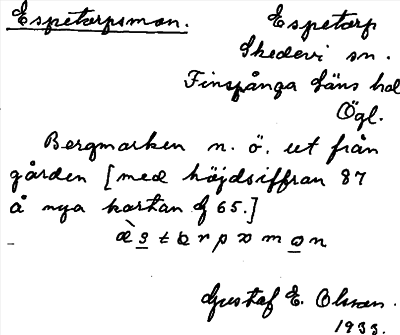 Espetorpsmon.
Espetorp
Skedevi sn.
Finspånga läns hd
Ögl.
Bergmarken n. ö. ut från
gården [med höjdsiffran 87
å nya kartan 65.]
Gustaf E. Olsson.
1933.